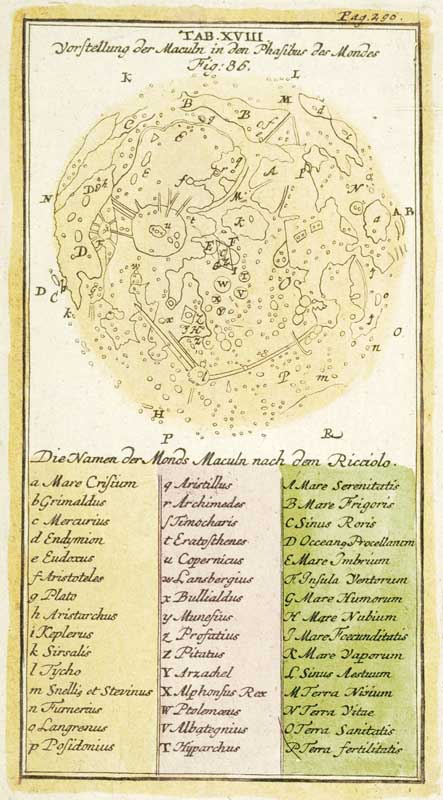 Pag. 290.
TAB. XVIII
Vorstellung der Maculn in den Phasibus des Mondes
Fig: 86.
Die Namen der Monds Maculn nach dem Ricciolo.
a Mare Crisium
b Grimaldus
c Mercurius
d Endymion
e Eudoxus
f Aristoteles
g Plato
h Aristarchus
i Keplerus
k Sirsalis
l Tycho
m Snellig et Stevinus
n Furnerius
o Langrenus
p Posidonius
q Aristillus
r Archimedes
ſ Timocharis
t Eratosthenes
u Copernicus
w Lansbergius
x Bullialdus
y Munesius
z Profatius
z Pitatus
Y Arzachel
X Alphonsus Rex
W Ptolemœus
V Albategnius
T Hyparchus
A Mare Serenitatis
B Mare Frigoris
C Sinus Roris
D Occeang Procellarum
E Mare Imbrium
F Insula Ventorum
G Mare Humorum
H Mare Nubium
I Mare Fœcunditatis
K Mare Vaporum
L Sinus Aestuum
M Terra Nivium
N Terra Vitae
O Terra Sanitatis
P Terra fertilitatis